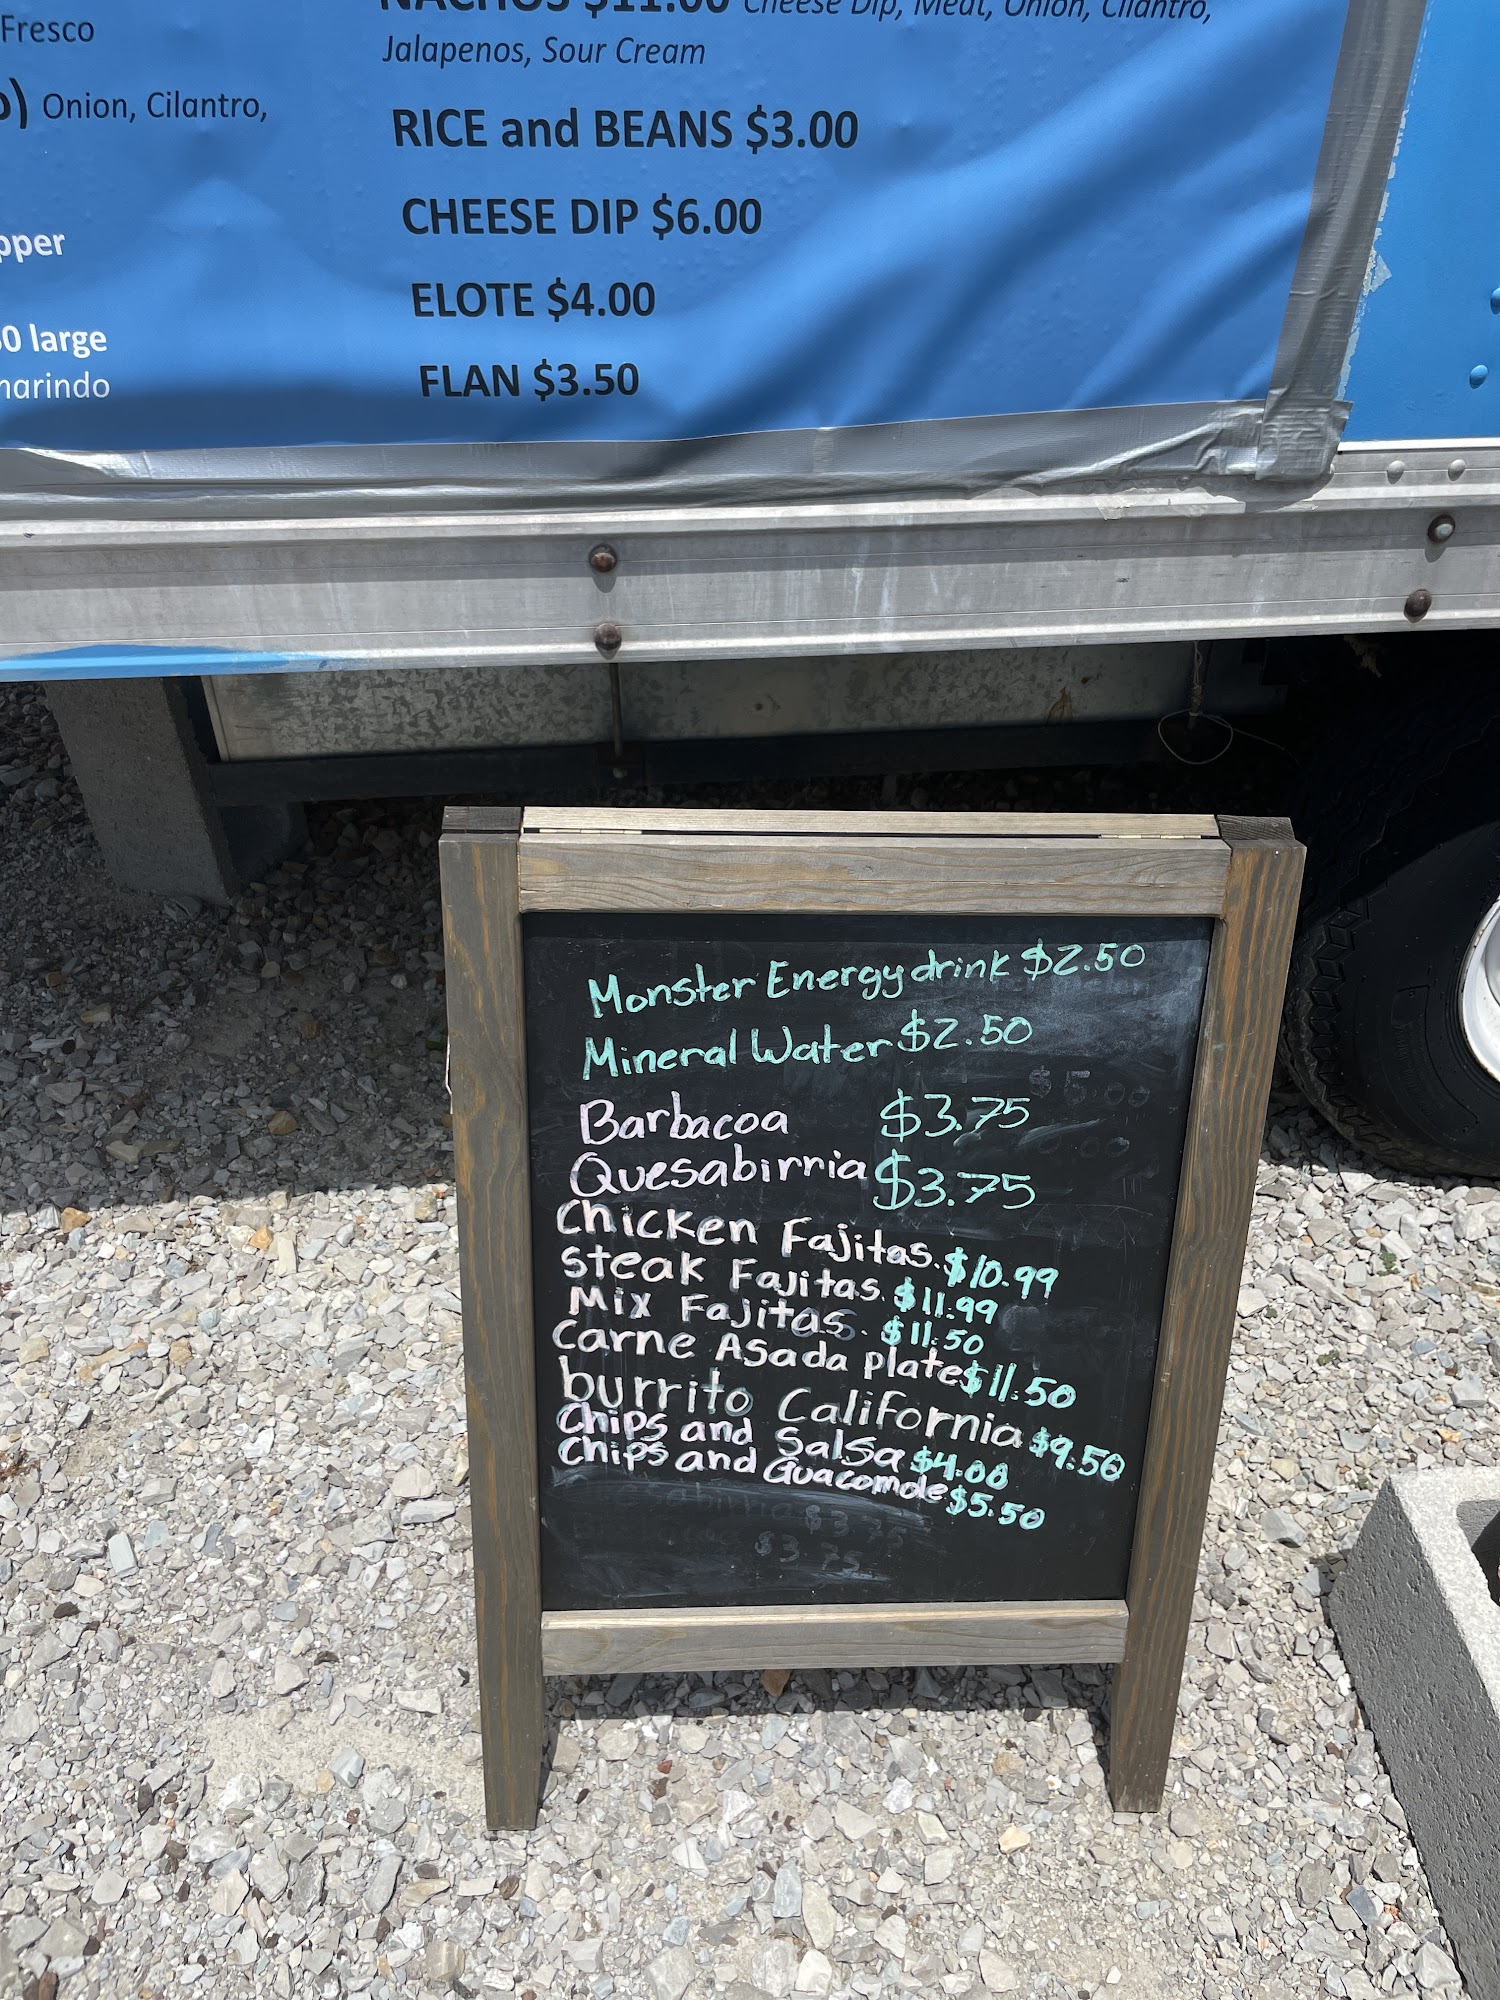 Fresco
Onion, Cilantro,
large
NACHOS $11.00 Cheese Dip, Meat, Onion, Cilantro,
Jalapenos, Sour Cream
RICE and BEANS $3.00
CHEESE DIP $6.00
ELOTE $4.00
FLAN $3.50
Monster Energy drink $2.50
Mineral Water $2.50
Barbacoa $3.75
Quesabirria $3.75
Chicken Fajitas. $10.99
steak Fajitas. $11.99
Mix Fajitas. $11.50
Carne Asada plate $11.50
burrito California $9.50
Chips and Salsa $4.00
Chips and Guacomole $5.50